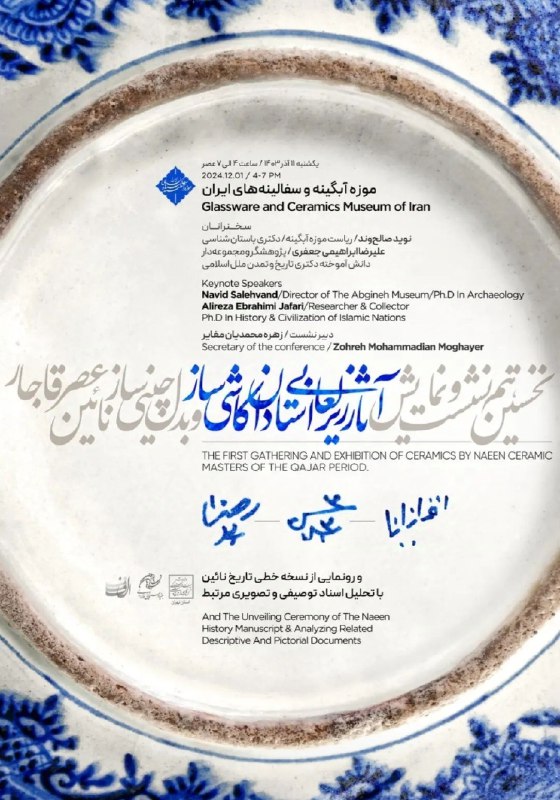 یکشنبه ۱۱ آذر ۱۴۰۳ / ساعت ۴ الی ۷ عصر
2024.12.01 / 4-7 PM
موزه آبگینه و سفالینه‌های ایران
Glassware and Ceramics Museum of Iran
سخنرانان
نوید صالح‌وند / ریاست موزه آبگینه / دکتری باستان‌شناسی
علیرضا ابراهیمی جعفری / پژوهشگر و مجموعه‌دار
دانش آموخته دکتری تاریخ و تمدن ملل اسلامی
Keynote Speakers
Navid Salehvand/Director of The Abgineh Museum/Ph.D In Archaeology
Alireza Ebrahimi Jafari/Researcher & Collector
Ph.D In History & Civilization of Islamic Nations
دبیر نشست / زهره محمدیان مغایر
Secretary of the conference / Zohreh Mohammadian Moghayer
نخستین نشست و نمایش آثار زیرلعابی استادان کاشی‌ساز و بدل چینی‌ساز نائین عصر قاجار
THE FIRST GATHERING AND EXHIBITION OF CERAMICS BY NAEEN CERAMIC
MASTERS OF THE QAJAR PERIOD.
و رونمایی از نسخه خطی تاریخ نائین
با تحلیل اسناد توصیفی و تصویری مرتبط
And The Unveiling Ceremony of The Naeen
History Manuscript & Analyzing Related
Descriptive And Pictorial Documents